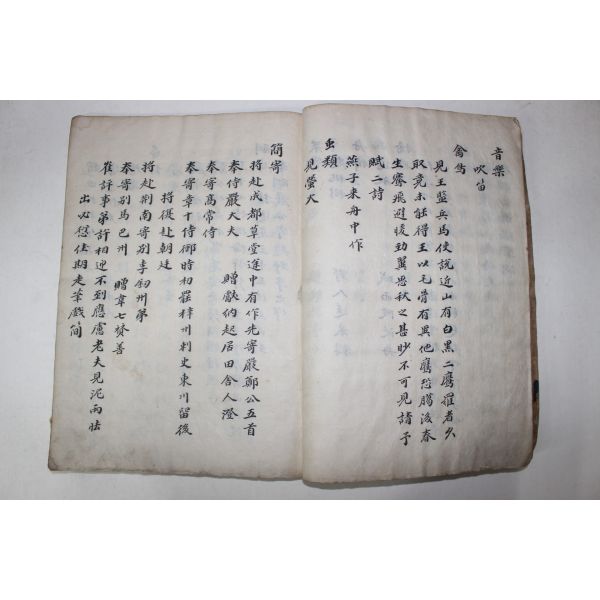 音樂
吹笛
禽鳥
見王監兵馬使說近山有白黑二鷹羅者久
取竟未能得王以毛骨有異他鷹恐臘後春
生騫飛避暖勁翼思秋之甚眇不可見請予
賦二詩
燕子来舟中作
虫類
見螢火
簡寄
將赴成都草堂途中有作先寄嚴鄭公五首
奉待嚴大夫
贈獻納起居田舍人澄
奉寄高常侍
奉寄章十侍御時初罷梓州刺史東川留後
將復赴朝廷
將赴荊南寄別李劍州弟
奉寄別馬巴州
贈韋七贊善
崔評事弟許相迎不到應慮老夫見泥雨怯
出必愆佳期走筆戲簡